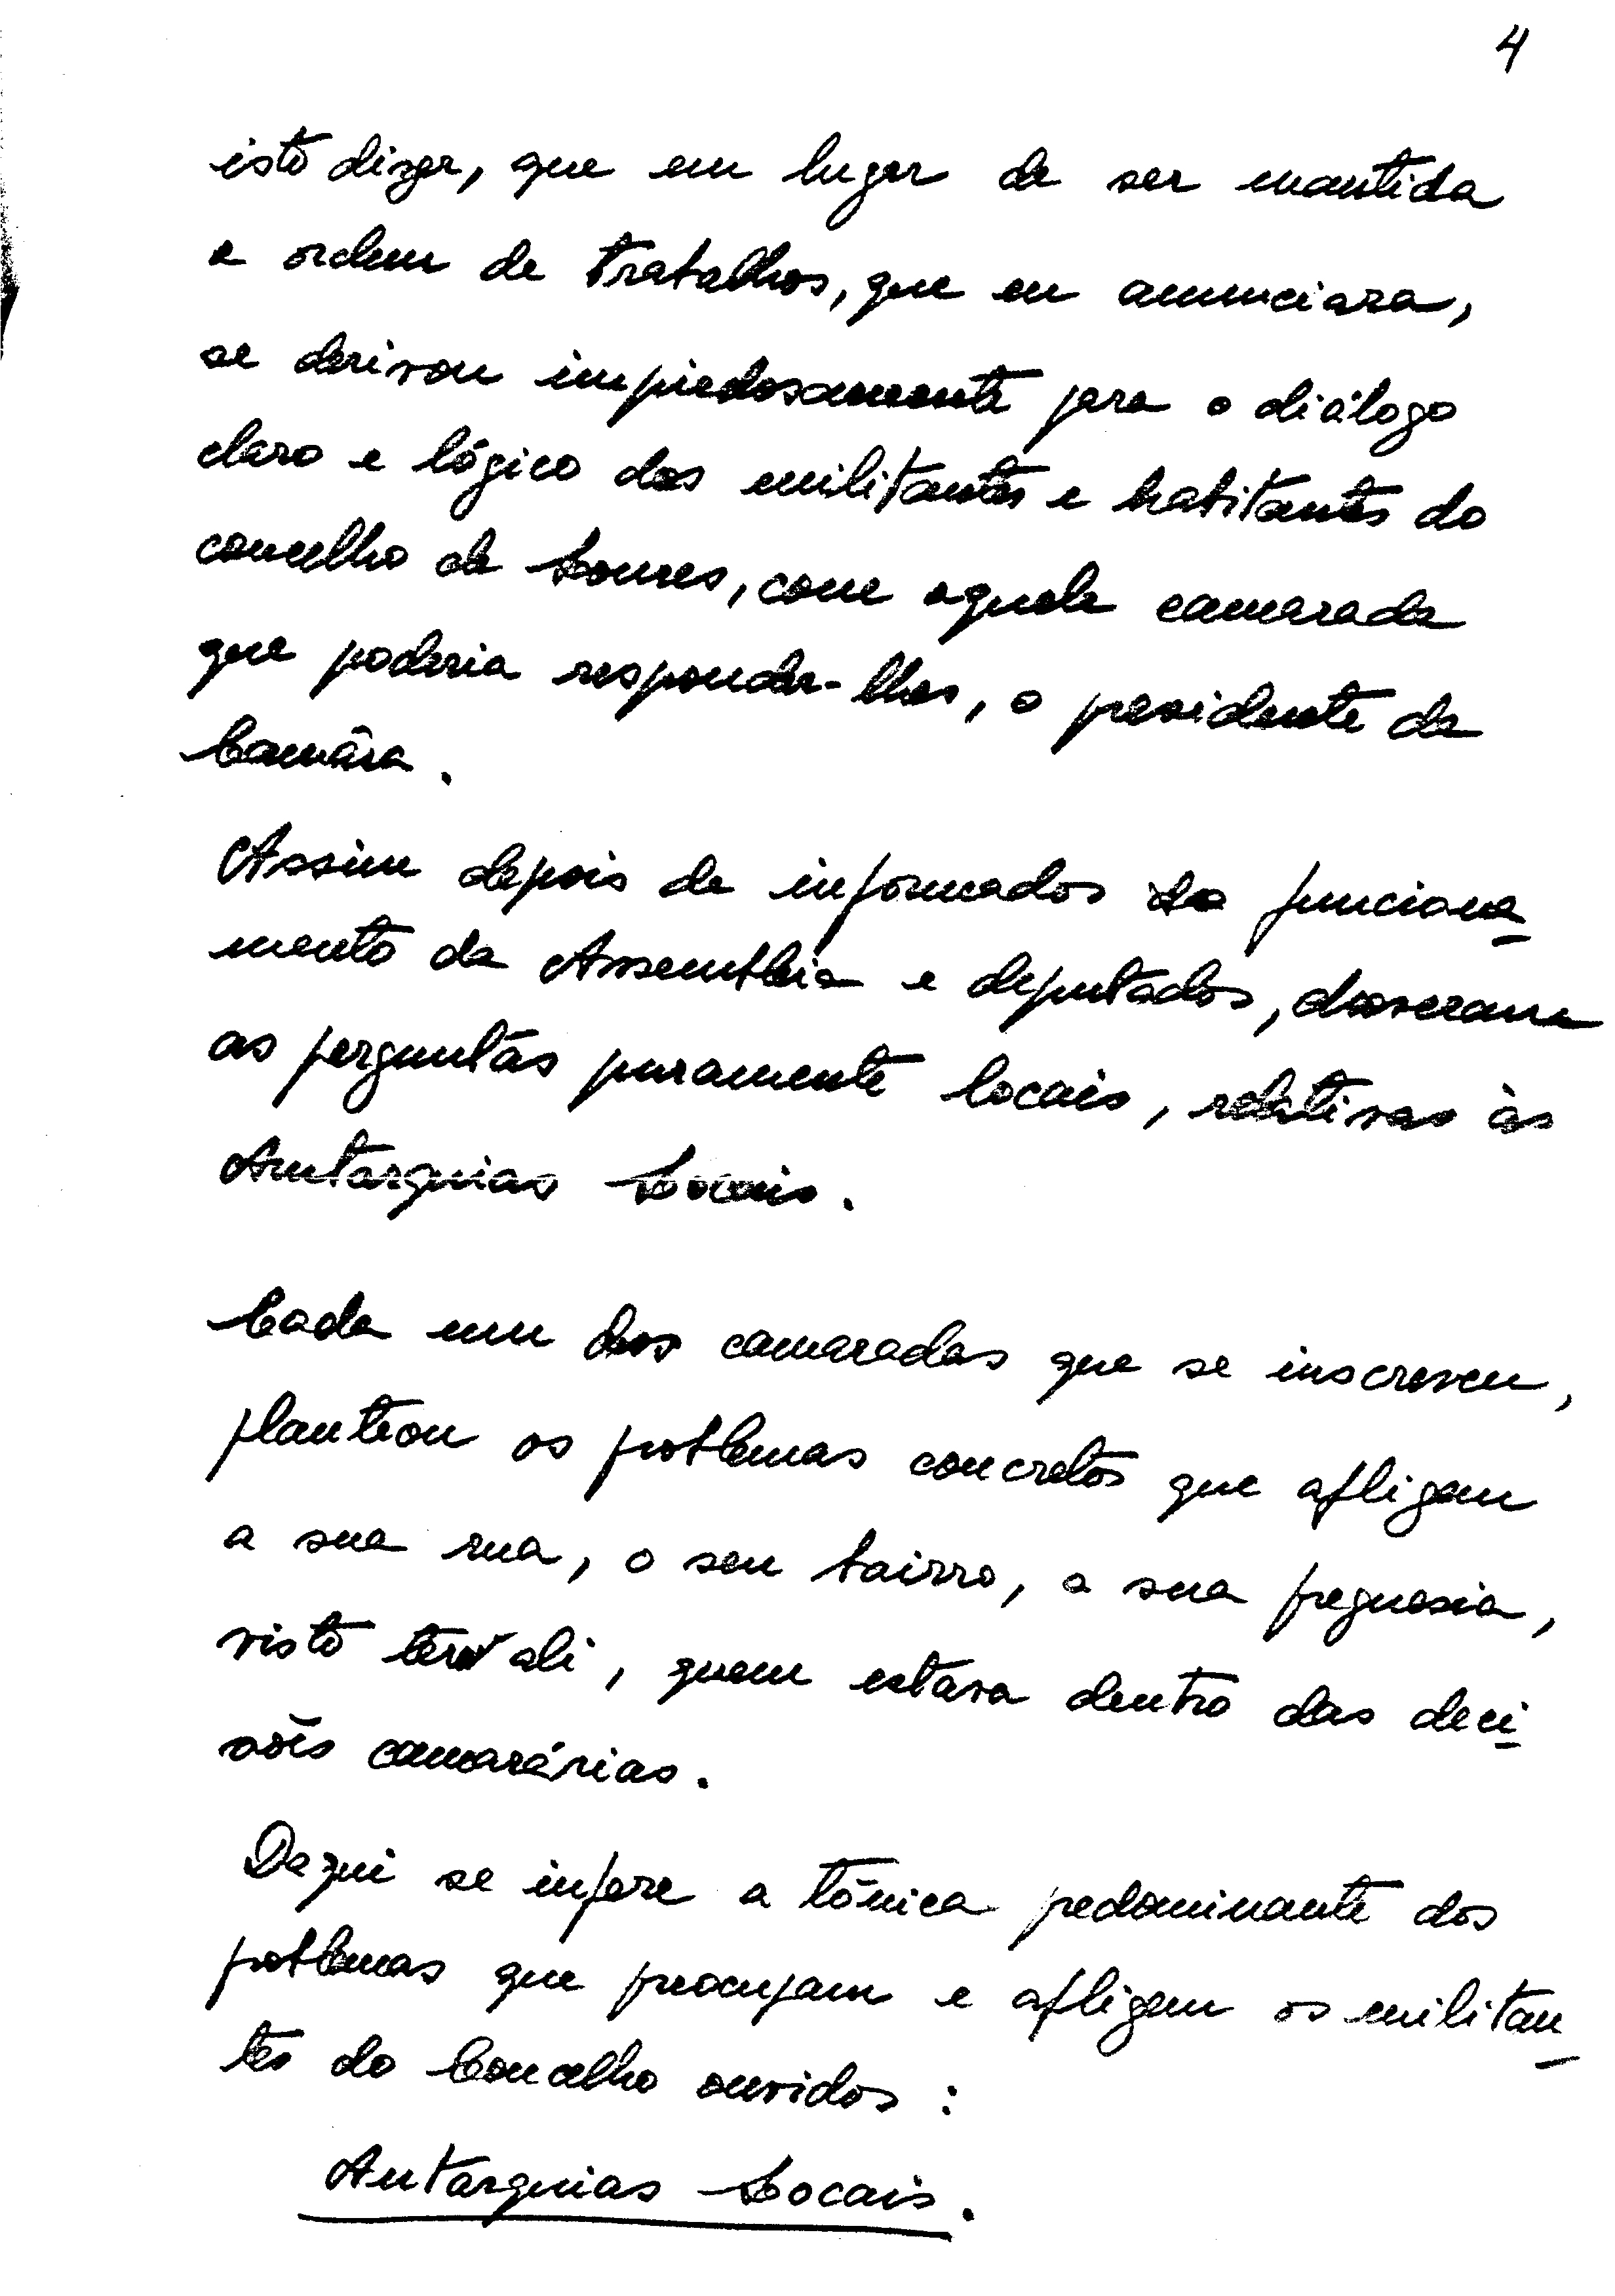 4
isto dizer, que em lugar de ser mantida
a ordem de trabalhos, que eu anunciara,
se derivou impiedosamente para o diálogo
claro e lógico dos militantes e habitantes do
concelho de Loures, com aquele camarada
que poderia responder-lhes, o presidente da
Camâra.
Assim depois de informados do funciona
mento da Assembleia e deputados,
as perguntas puramente locais, relativas às
Autarquias Locais.
Cada um dos camaradas que se inscreveu,
planteou os problemas concretos que afligem
a sua rua, o seu bairro, a sua freguesia,
visto ter ali, quem estava dentro das deci
sões camarárias.
Daqui se infere a tónica predominante dos
problemas que preocupam e afligem os militan
tes do Concelho ouvidos :
Autarquias Locais.